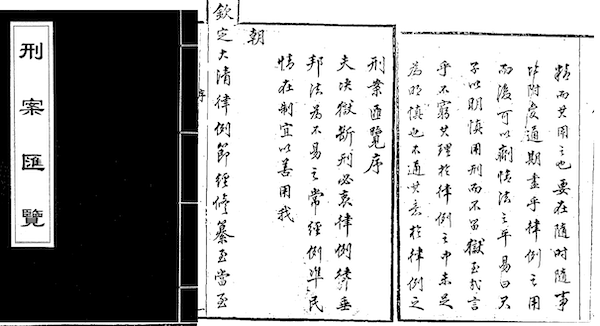 刑案匯覽
刑案匯覽序
夫决獄斷刑必衷律例律垂
邦法為不易之常經例準民
情在制宜以善用我
朝
欽定大清律例節經修纂至當至
序
精而其用之也要在隨時隨事
比附變通期盡乎律例之用
而後可以劑情法之平易曰君
子以明慎用刑而不留獄至哉言
乎不窮其理於律例之中未足
為明慎也不通其意於律例之